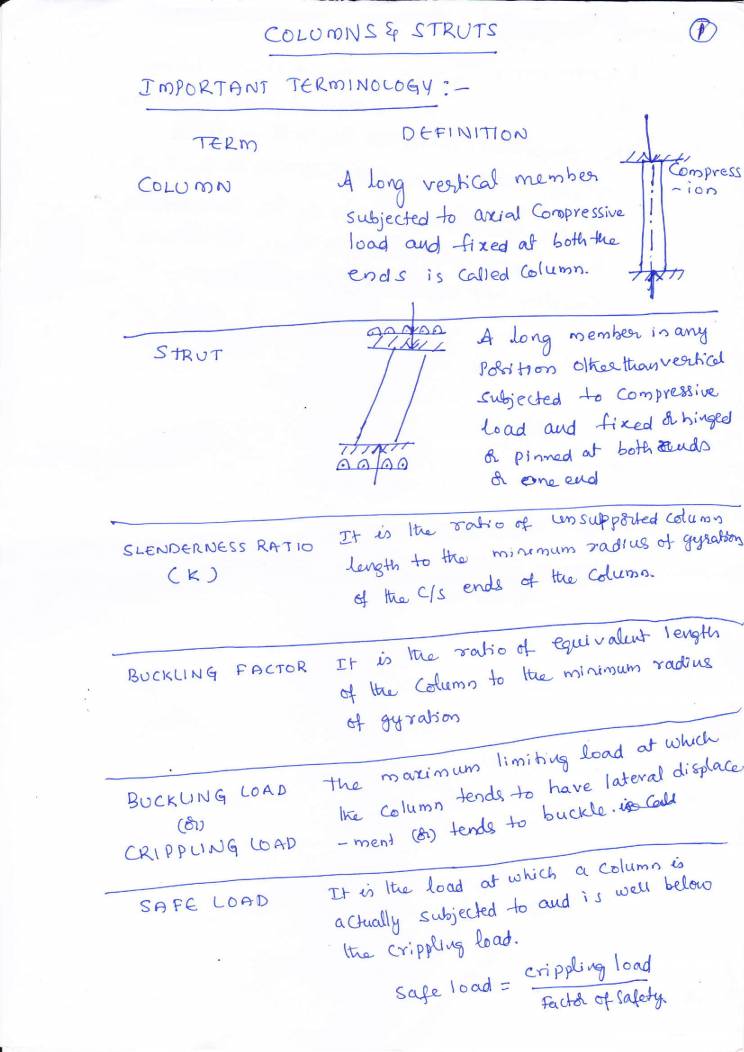 COLUMNS & STRUTS
1
IMPORTANT TERMINOLOGY :-
TERM
DEFINITION
COLUMN
A long vertical member
subjected to axial Compressive
load and fixed at both the
ends is called Column.
Compress
-ion
STRUT
A long member in any
position other than vertical
subjected to compressive
load and fixed or hinged
or pinned at both ends
or one end
SLENDERNESS RATIO
(K)
It is the ratio of unsupported column
length to the minimum radius of gyration
of the C/S ends of the Column.
BUCKLING FACTOR
It is the ratio of equivalent length
of the Column to the minimum radius
of gyration
BUCKLING LOAD
(or)
CRIPPLING LOAD
The maximum limiting load at which
the column tends to have lateral displace
-ment (or) tends to buckle.
SAFE LOAD
It is the load at which a column is
actually subjected to and is well below
the crippling load.
Safe load = crippling load
Factor of Safety.